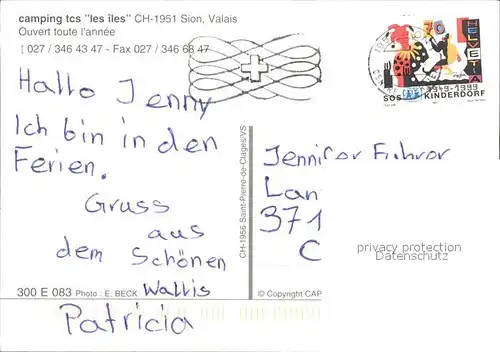 camping tcs "les îles" CH-1951 Sion, Valais
Ouvert toute l'année
[ 027 / 346 43 47 - Fax 027 / 346 68 47
HELVETIA
1949-1999
SOS KINDERDORF
Hallo Jenny
Ich bin in den
Ferien.
Gruss
aus
dem Schönen
Wallis
Patricia
CH-1956 Saint-Pierre-de-Clages/VS
Jennifer Fuhrer
Lan
371
C
privacy protection
Datenschutz
300 E 083 Photo : E. BECK
© Copyright CAP